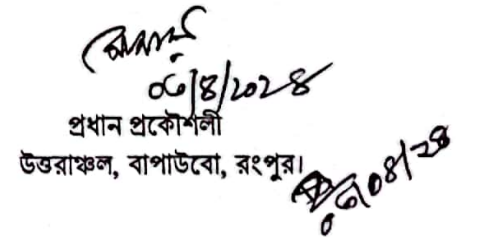 ০৬/৪/২০২৪
প্রধান প্রকৌশলী
উত্তরাঞ্চল, বাপাউবো, রংপুর।
০৬/০৪/২৪